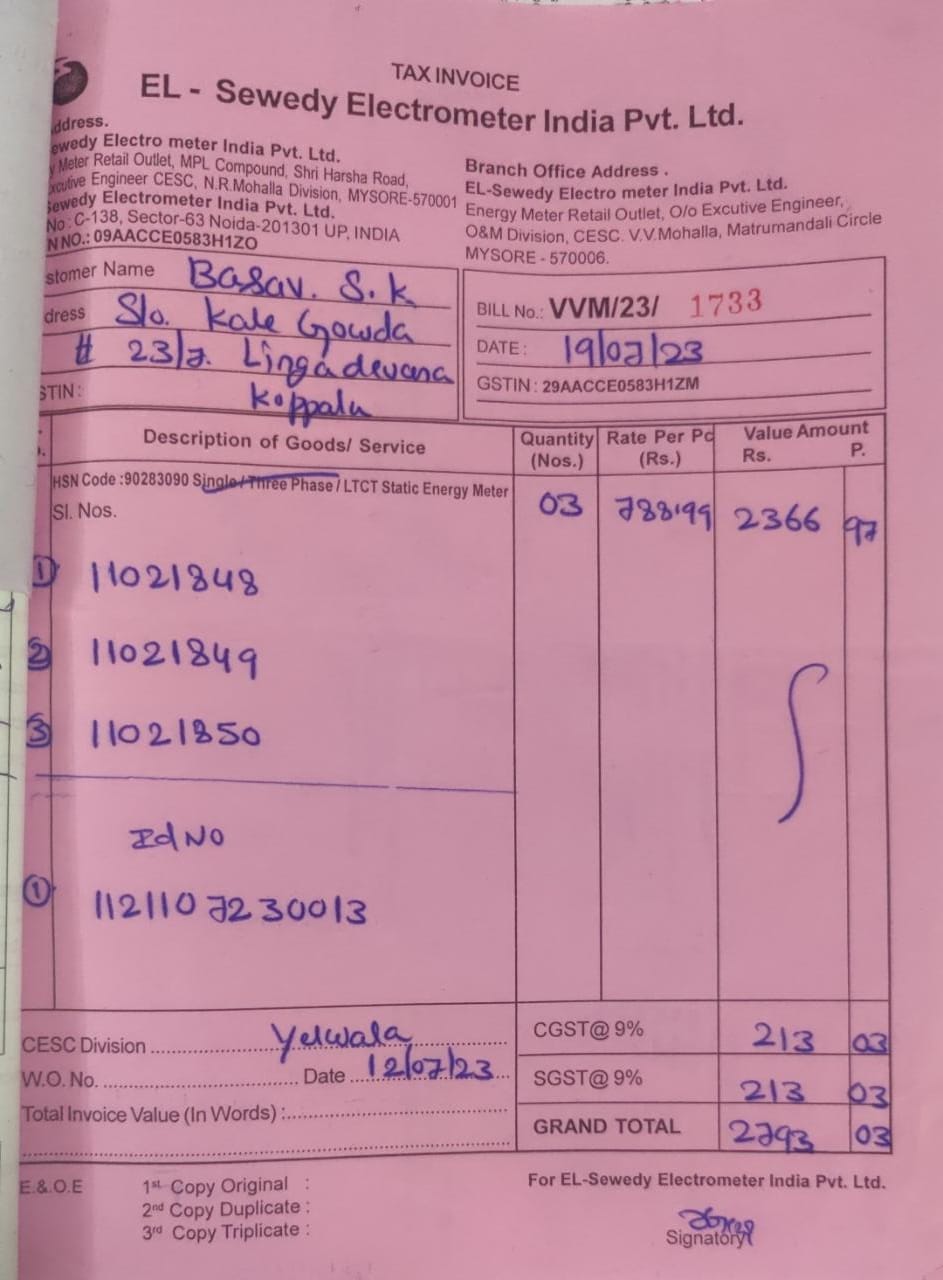 TAX INVOICE
EL - Sewedy Electrometer India Pvt. Ltd.
ddress.
ewedy Electro meter India Pvt. Ltd.
y Meter Retail Outlet, MPL Compound, Shri Harsha Road,
xcutive Engineer CESC, N.R.Mohalla Division, MYSORE-570001
Sewedy Electrometer India Pvt. Ltd.
No : C-138, Sector-63 Noida-201301 UP, INDIA
N NO.: 09AACCE0583H1ZO
Branch Office Address .
EL-Sewedy Electro meter India Pvt. Ltd.
Energy Meter Retail Outlet, O/o Excutive Engineer,
O&M Division, CESC. V.V.Mohalla, Matrumandali Circle
MYSORE - 570006.
stomer Name Basav. S.K
dress S/o. Kale Gowda
# 23/7. Lingadevara
STIN : Koppalu
BILL No.: VVM/23/ 1733
DATE : 19/07/23
GSTIN : 29AACCE0583H1ZM
Description of Goods/ Service Quantity (Nos.) Rate Per Pc (Rs.) Value Amount Rs. P.
HSN Code :90283090 Single / Three Phase / LTCT Static Energy Meter 03 788.99 2366 97
Sl. Nos.
1 11021848
2 11021849
3 11021850
Id NO
1 1121107230013
CESC Division Yelwala
W.O. No. Date 12/07/23
Total Invoice Value (In Words) :
CGST@ 9% 213 03
SGST@ 9% 213 03
GRAND TOTAL 2793 03
E.&.O.E 1st Copy Original :
2nd Copy Duplicate :
3rd Copy Triplicate :
For EL-Sewedy Electrometer India Pvt. Ltd.
Signatory